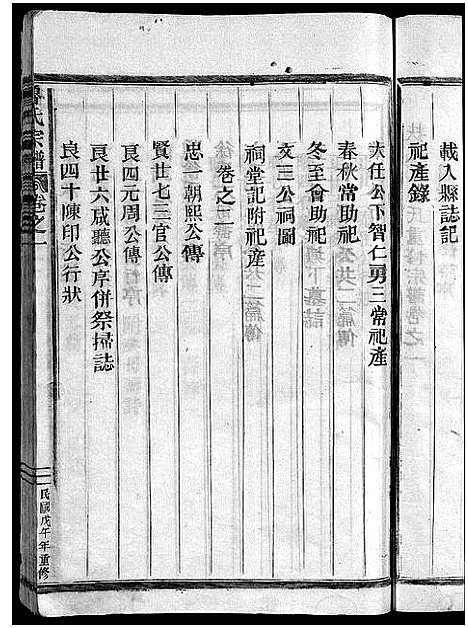 載入縣誌記
祀產錄
大任公下智仁勇三常祀產
春秋常助祀
冬至會助祀
文三公祠圖
祠堂記附祀產
卷之二
忠一朝熙公傳
賢廿七三官公傳
良四元周公傳
良廿六咸聽公序併祭掃誌
良四十陳印公行狀
氏宗譜
卷之一
民國戊午年重修